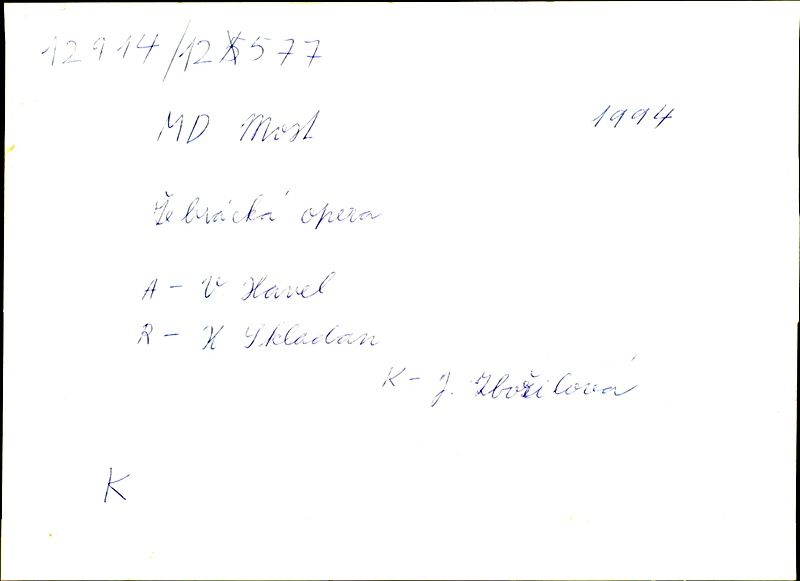 12914/12577
MD Most 1994
Žebrácká opera
A - V Havel
R - H Skladan
K - J. Zbořilová
K